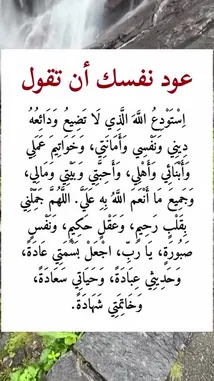 عود نفسك أن تقول
اِسْتَوْدِعُ اللَّهَ الَّذِي لَا تَضِيعُ وَدَائِعُهُ
دِينِي وَنَفْسِي وَأَمَانَتِي، وَخَوَاتِيمَ عَمَلِي
وَأَبْنَائِي وَأَهْلِي، وَأَحِبَّتِي وَبَيْتِي وَمَالِي،
وَجَمِيعَ مَا أَنْعَمَ اللَّهُ بِهِ عَلَيَّ. اللَّهُمَّ جَمِّلْنِي
بِقَلْبٍ رَحِيمٍ، وَعَقْلٍ حَكِيمٍ، وَنَفْسٍ
صَبُورَةٍ، يَا رَبِّ، اجْعَلْ بَسْمَتِي عَادَةً،
وَحَدِيثِي عِبَادَةً، وَحَيَاتِي سَعَادَةً،
وَخَاتِمَتِي شَهَادَةً.